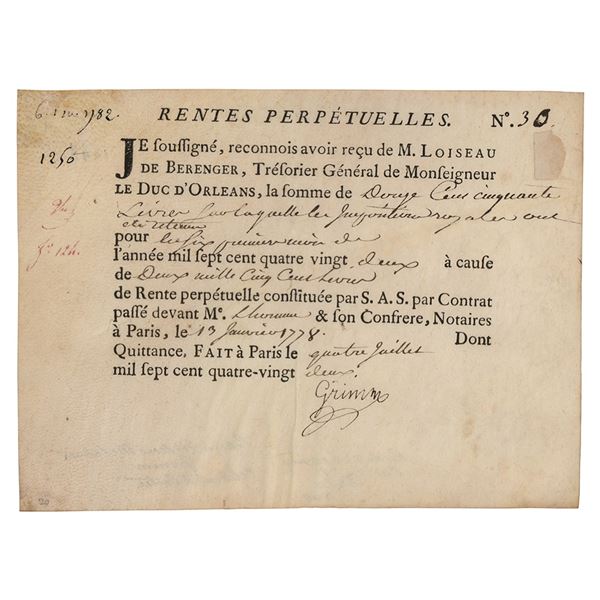 6 1782.
RENTES PERPÉTUELLES. N°. 30
1250
JE soussigné, reconnois avoir reçu de M. LOISEAU
DE BERENGER, Trésorier Général de Monseigneur
LE DUC D'ORLEANS, la somme de Douze Cens cinquante
Livres sur laquelle les Impositions royales ont
été retenues
pour les six premiers mois de
l'année mil sept cent quatre vingt deux à cause
de Deux mille Cinq Cens Livres
de Rente perpétuelle constituée par S. A. S. par Contrat
passé devant Me. Lhomme & son Confrere, Notaires
à Paris, le 13 Janvier 1778. Dont
Quittance, FAIT à Paris le quatre Juillet
mil sept cent quatre-vingt deux.
Grimm
20